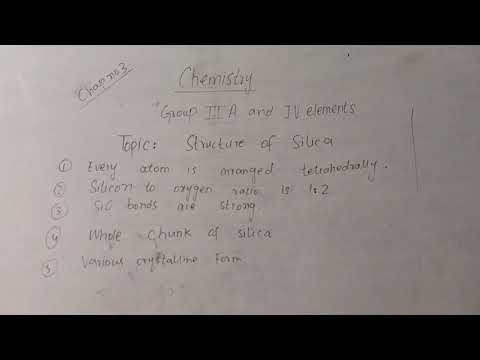 Chap no 3
Chemistry
"Group III A and IV elements
Topic: Structure of Silica
① Every atom is arranged tetrahedrally.
② Silicon to oxygen ratio is 1:2
③ SiO bonds are strong
④ Whole chunk of silica
⑤ Various crystalline form